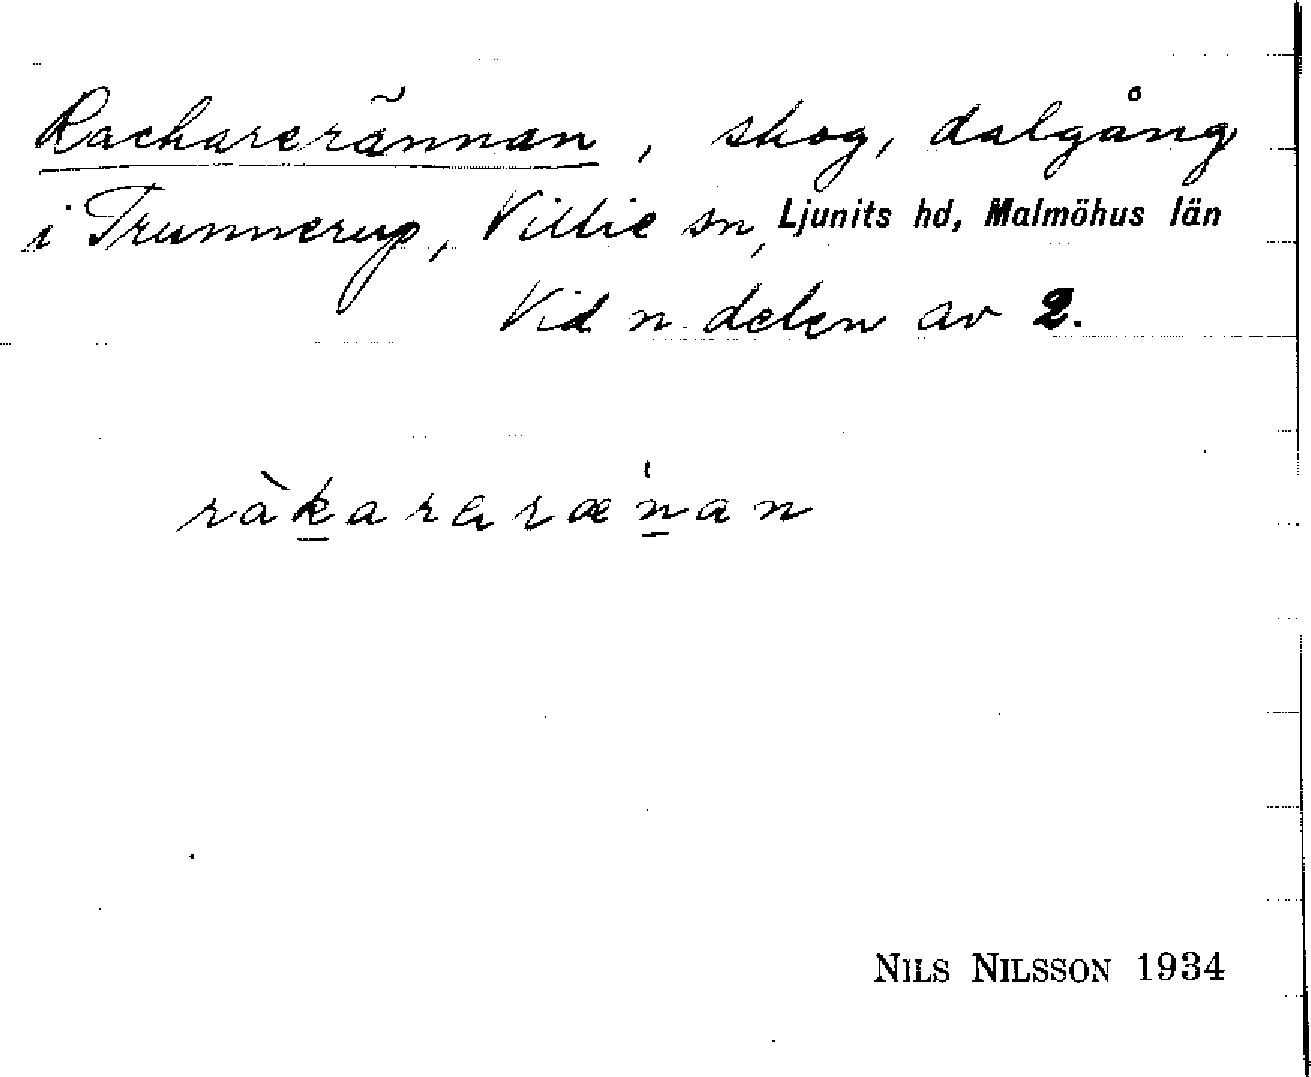 Rackarerännan, skog, dalgång
i Trunnerup, Villie sn, Ljunits hd, Malmöhus län
Vid n. delen av 2.
ràkararænan
NILS NILSSON 1934